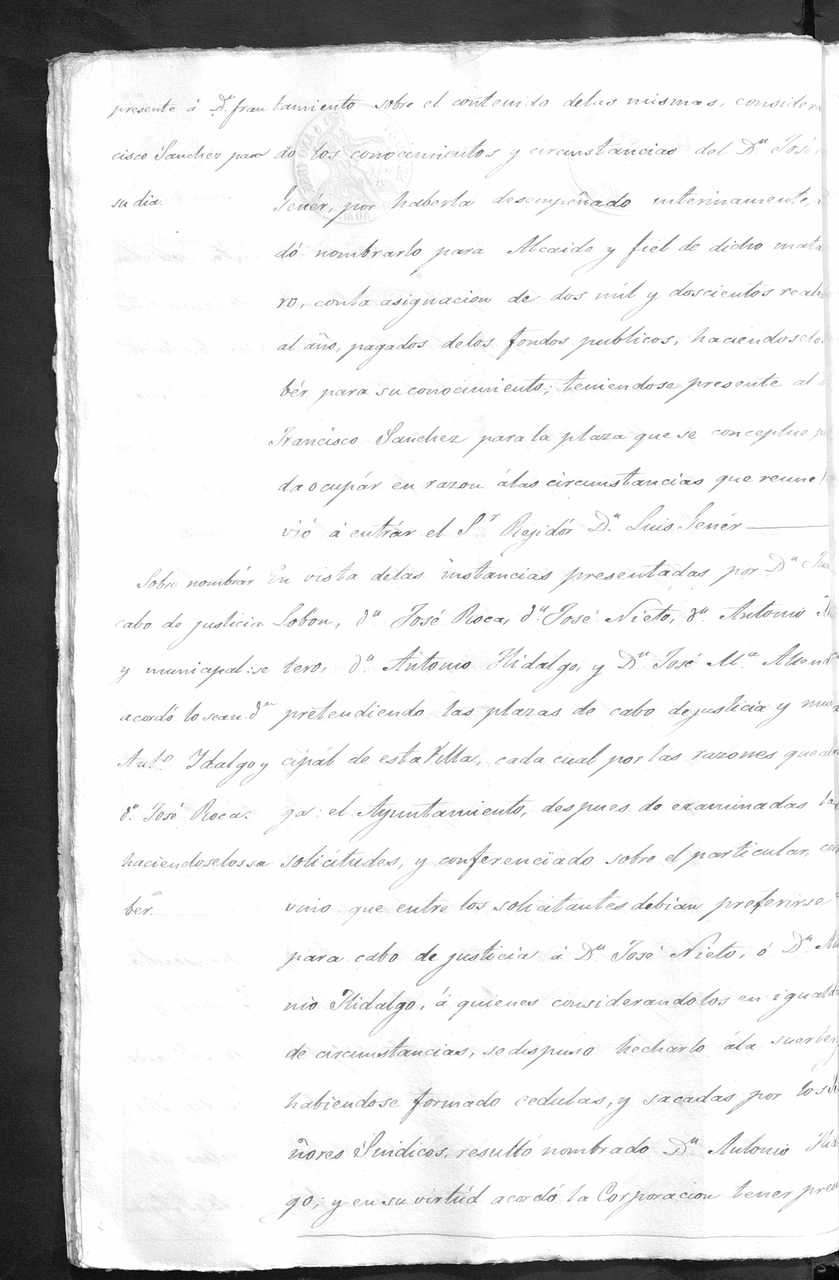 presente á Dn. fran
cisco Sanchez para
su dia.
tamiento sobre el contenido delas mismas, consideran
do los conocimientos y circunstancias del Dn. José
Jenér, por haberla desempeñado interinamente,
dó nombrarlo para Alcaide y fiel de dicho mata
ro, conla asignacion de dos mil y doscientos reales
al año, pagados delos fondos publicos, haciendosele
bér para su conocimiento; teniendose presente al
Francisco Sanchez para la plaza que se conceptue
da ocupár en razon álas circunstancias que reune
vió á entrár el Sr. Regidór Dn. Luis Jenér
Sobre nombrár
cabo de justicia
y municipal: se
acordó lo sean dn.
Anto. Idalgo y
dn. José Roca.
haciendoselos sa
bér.
En vista delas instancias presentadas por Dn.
Lobon, dn. José Roca, dn. José Nieto, dn. Antonio
tero, dn. Antonio Hidalgo, y Dn. José Ma.
pretendiendo las plazas de cabo de justicia y muni
cipál de esta Villa, cada cual por las razones que ale
ga: el Ayuntamiento, despues de examinadas las
solicitúdes, y conferenciado sobre el particular, con
vino que entre los solicitantes debian preferirse
para cabo de justicia á Dn. José Nieto, ó Dn. Anto
nio Hidalgo, á quienes considerandolos en igualdad
de circunstancias, se dispuso hecharlo ála suerte,
habiendose formado cedulas, y sacadas por los Se
ñores Sindicos, resultó nombrado Dn. Antonio Hidal
go; y en su virtúd acordó la Corporacion tener pres